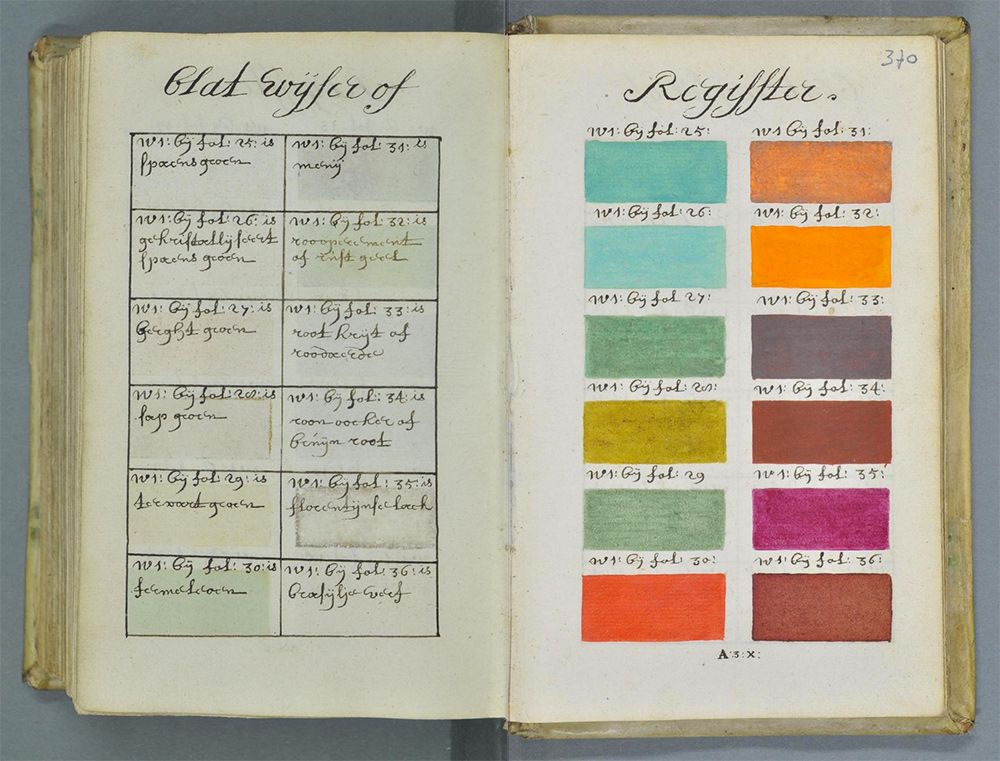 Blat wijser of
w1: bij fol: 25: is
spaens groen
w1: bij fol: 31: is
menij
w1: bij fol: 26: is
gekristallijseert
spaens groen
w1: bij fol: 32: is
roooperement
of rust geel
w1: bij fol: 27: is
berght groen
w1: bij fol: 33: is
root krijt of
roodaerde
w1: bij fol: 28: is
sap groen
w1: bij fol: 34: is
roon oocker of
bruijn root
w1: bij fol: 29: is
terwart groen
w1: bij fol: 35: is
florentijnse lack
w1: bij fol: 30: is
fermeloen
w1: bij fol: 36: is
brasijlje verf
370
Regisster.
w1: bij fol: 25:
w1 bij fol: 31:
w1: bij fol: 26:
w1: bij fol: 32:
w1: bij fol: 27:
w1: bij fol: 33:
w1: bij fol: 28:
w1: bij fol: 34:
w1: bij fol: 29
w1: bij fol: 35:
w1: bij fol: 30:
w1: bij fol: 36:
A:3:x: